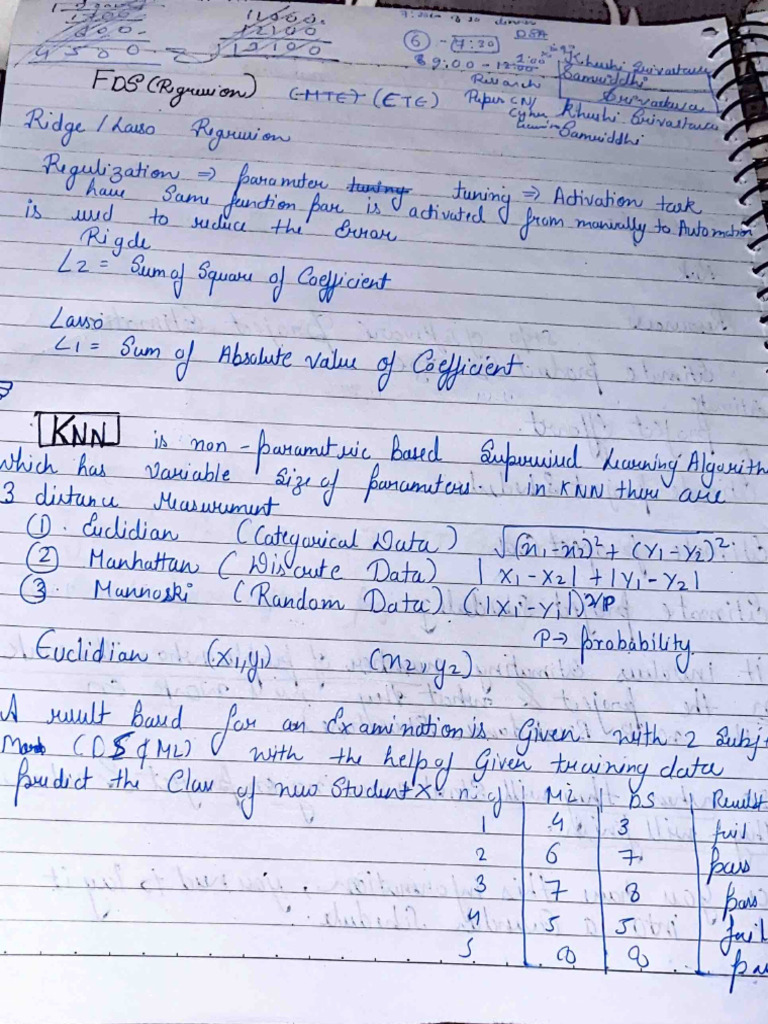 11000.
12100
13100
4500
7:30am 8:30 dinner
DSA
6 - 7:30
9:00 - 12:00
2:00
Khushi Srivastava
Samriddhi
Srivastava
Research
Paper CN/
Cyber
Khushi Srivastava
Samriddhi
FDS (Rgression) (MTE) (ETE)
Ridge / Lasso Regression
Regulization ⇒ parameter tuning tuning ⇒ Activation task
have same function par is activated from manually to Automation
is used to reduce the Error
Rigde
L2 = Sum of Square of Coefficient
Lasso
L1 = Sum of Absolute value of Coefficient
KNN is non-parametric based Supervised Learning Algorith
which has variable size of parameters. in KNN there are
3 distance Measurement
(1). Euclidian (Categorical Data) √(x1-x2)² + (Y1-Y2)²
(2) Manhattan (Discrete Data) |X1-X2| + |Y1-Y2|
(3) Mannoski (Random Data) (|Xi-Yi|)^2/P
P → probability
Euclidian (x1,y1) (x2,y2)
A result based for an Examination is Given with 2 Subj
Marks (DS & ML) with the help of Given training data
predict the Class of new Student X. n. of ML DS Result
1 4 3 fail
2 6 7 pass
3 7 8 pass
4 5 5 fail
5 8 8 pa